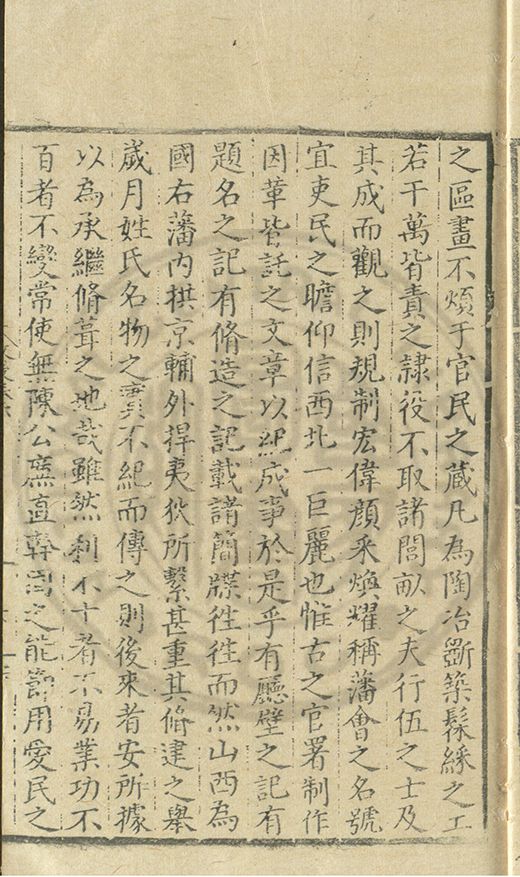 之區畫不煩于官民之蔵凡為陶冶斲築髹綵之工
若干萬皆責之隷役不取諸閭畝之夫行伍之士及
其成而觀之則規制宏偉顔采煥耀稱藩會之名號
宜吏民之瞻仰信西北一巨麗也惟古之官署制作
因革皆託之文章以紀成事於是乎有廳壁之記有
題名之記有脩造之記載諸簡牒徃徃而然山西為
國右藩内拱京輔外捍夷狄所繫甚重其脩建之舉
歲月姓氏名物之實不紀而傳之則後來者安所據
以為承繼脩葺之地哉雖然利不十者不易業功不
百者不變常使無陳公廉直幹固之能節用愛民之